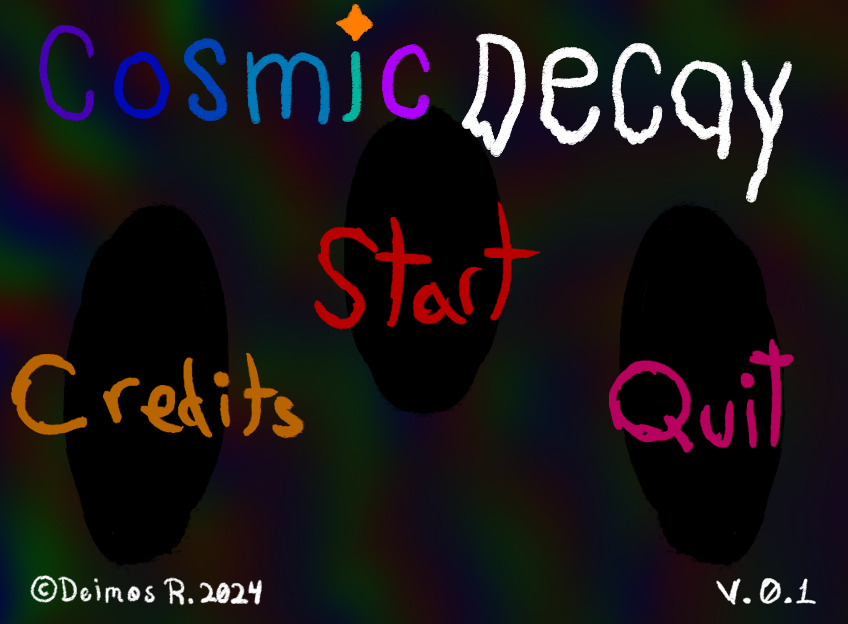 Cosmic Decay
Start
Credits
Quit
©Deimos R. 2024
v.0.1